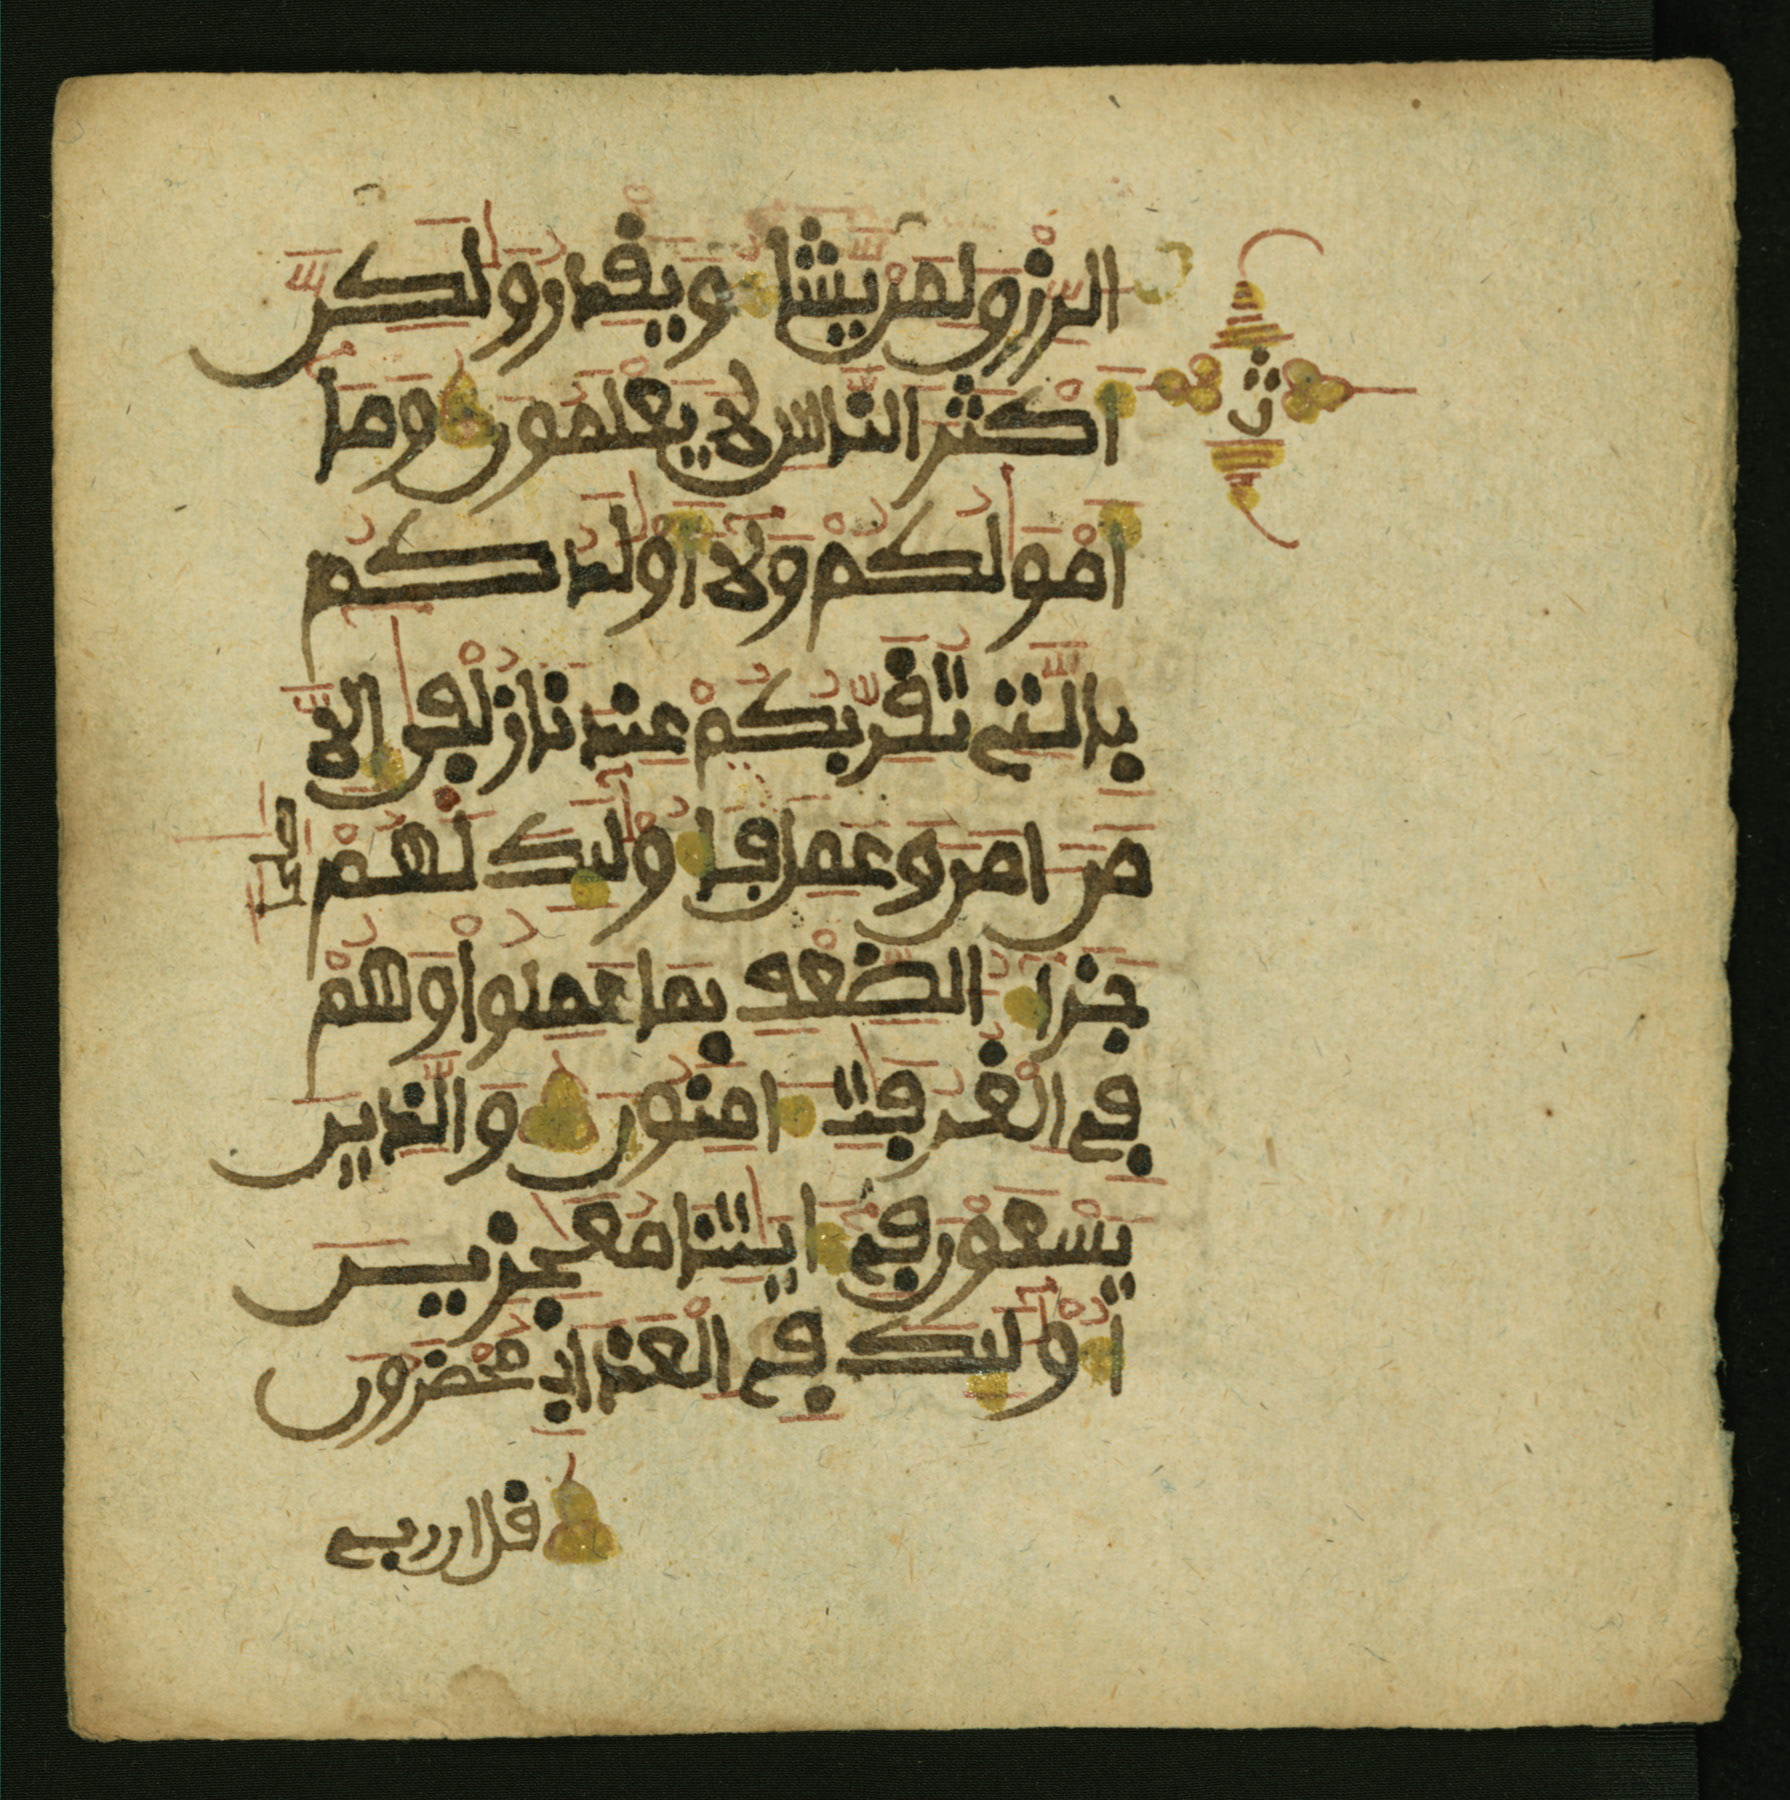 الرزق لمن يشا ويقدر ولكن
اكثر الناس لا يعلمون وما
امولكم ولا اولدكم
بالتي تقربكم عندنا زلفى الا
من امن وعمل صلحا فاوليك لهم
جزا الضعف بما عملوا وهم
في الغرفت امنون والذين
يسعون في ايتنا معجزين
اوليك في العذاب محضرون
قل ان ربي